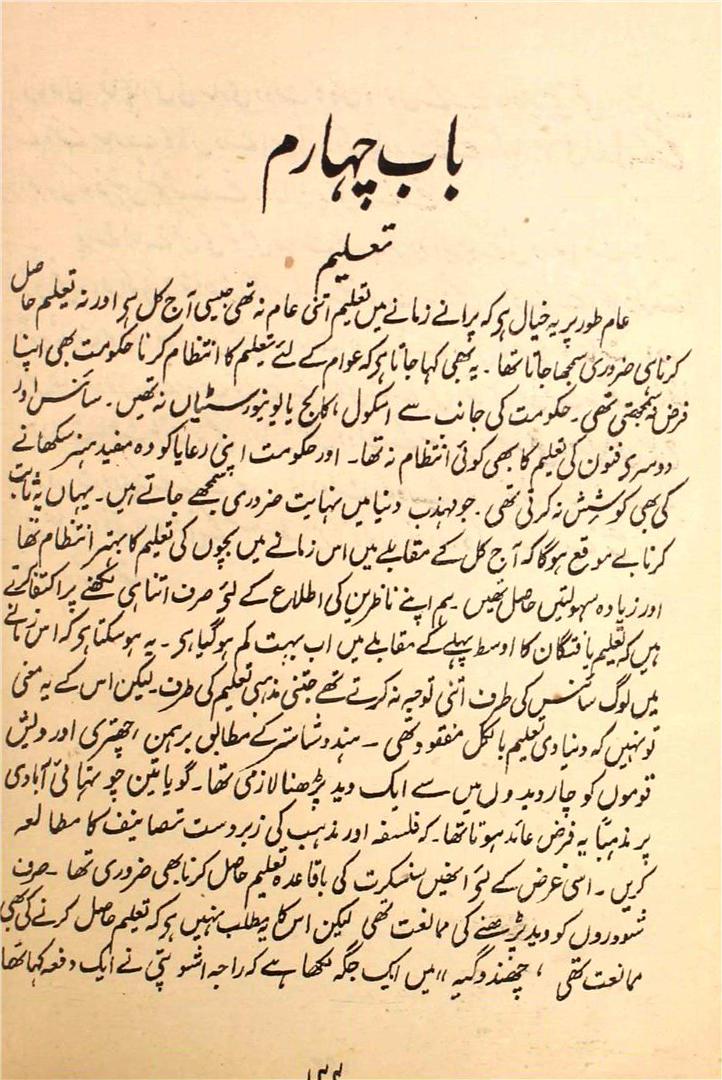 باب چہارم
تعلیم
عام طور پر یہ خیال ہے کہ پرانے زمانے میں تعلیم اتنی عام نہ تھی جیسی آج کل ہے اور نہ تعلیم حاصل
کرنا ہی ضروری سمجھا جاتا تھا۔ یہ بھی کہا جاتا ہے کہ عوام کے لئے تعلیم کا انتظام کرنا حکومت بھی اپنا
فرض نہ سمجھتی تھی۔ حکومت کی جانب سے اسکول، کالج یا یونیورسٹیاں نہ تھیں۔ سائنس اور
دوسری فنون کی تعلیم کا بھی کوئی انتظام نہ تھا۔ اور حکومت اپنی رعایا کو وہ مفید ہنر سکھانے
کی بھی کوشش نہ کرتی تھی۔ جو مہذب دنیا میں نہایت ضروری سمجھے جاتے ہیں۔ یہاں یہ ثابت
کرنا بے موقع ہوگا کہ آج کل کے مقابلے میں اس زمانے میں بچوں کی تعلیم کا بہتر انتظام تھا
اور زیادہ سہولتیں حاصل تھیں ہم اپنے ناظرین کی اطلاع کے لئے صرف اتنا ہی لکھنے پر اکتفا کرتے
ہیں کہ تعلیم یافتگان کا اوسط پہلے کے مقابلے میں اب بہت کم ہوگیا ہے۔ یہ ہو سکتا ہے کہ اس زمانے
میں لوگ سائنس کی طرف اتنی توجہ نہ کرتے تھے جتنی مذہبی تعلیم کی طرف لیکن اس کے یہ معنی
تو نہیں کہ دنیاوی تعلیم بالکل مفقود تھی۔ ہندو شاستر کے مطابق برہمن، چھتری اور ویش
قوموں کو چار ویدوں میں سے ایک وید پڑھنا لازمی تھا۔ گویا تین چوتھائی آبادی
پر مذہباً یہ فرض عائد ہوتا تھا۔ کہ فلسفہ اور مذہب کی زبردست تصانیف کا مطالعہ
کریں۔ اسی غرض کے لئے انھیں سنسکرت کی باقاعدہ تعلیم حاصل کرنا بھی ضروری تھا۔ صرف
شودروں کو وید پڑھنے کی ممانعت تھی لیکن اس کا یہ مطلب نہیں ہے کہ تعلیم حاصل کرنے کی بھی
ممانعت تھی، چھندوگیہ" میں ایک جگہ لکھا ہے کہ راجہ اشوپتی نے ایک دفعہ کہا تھا